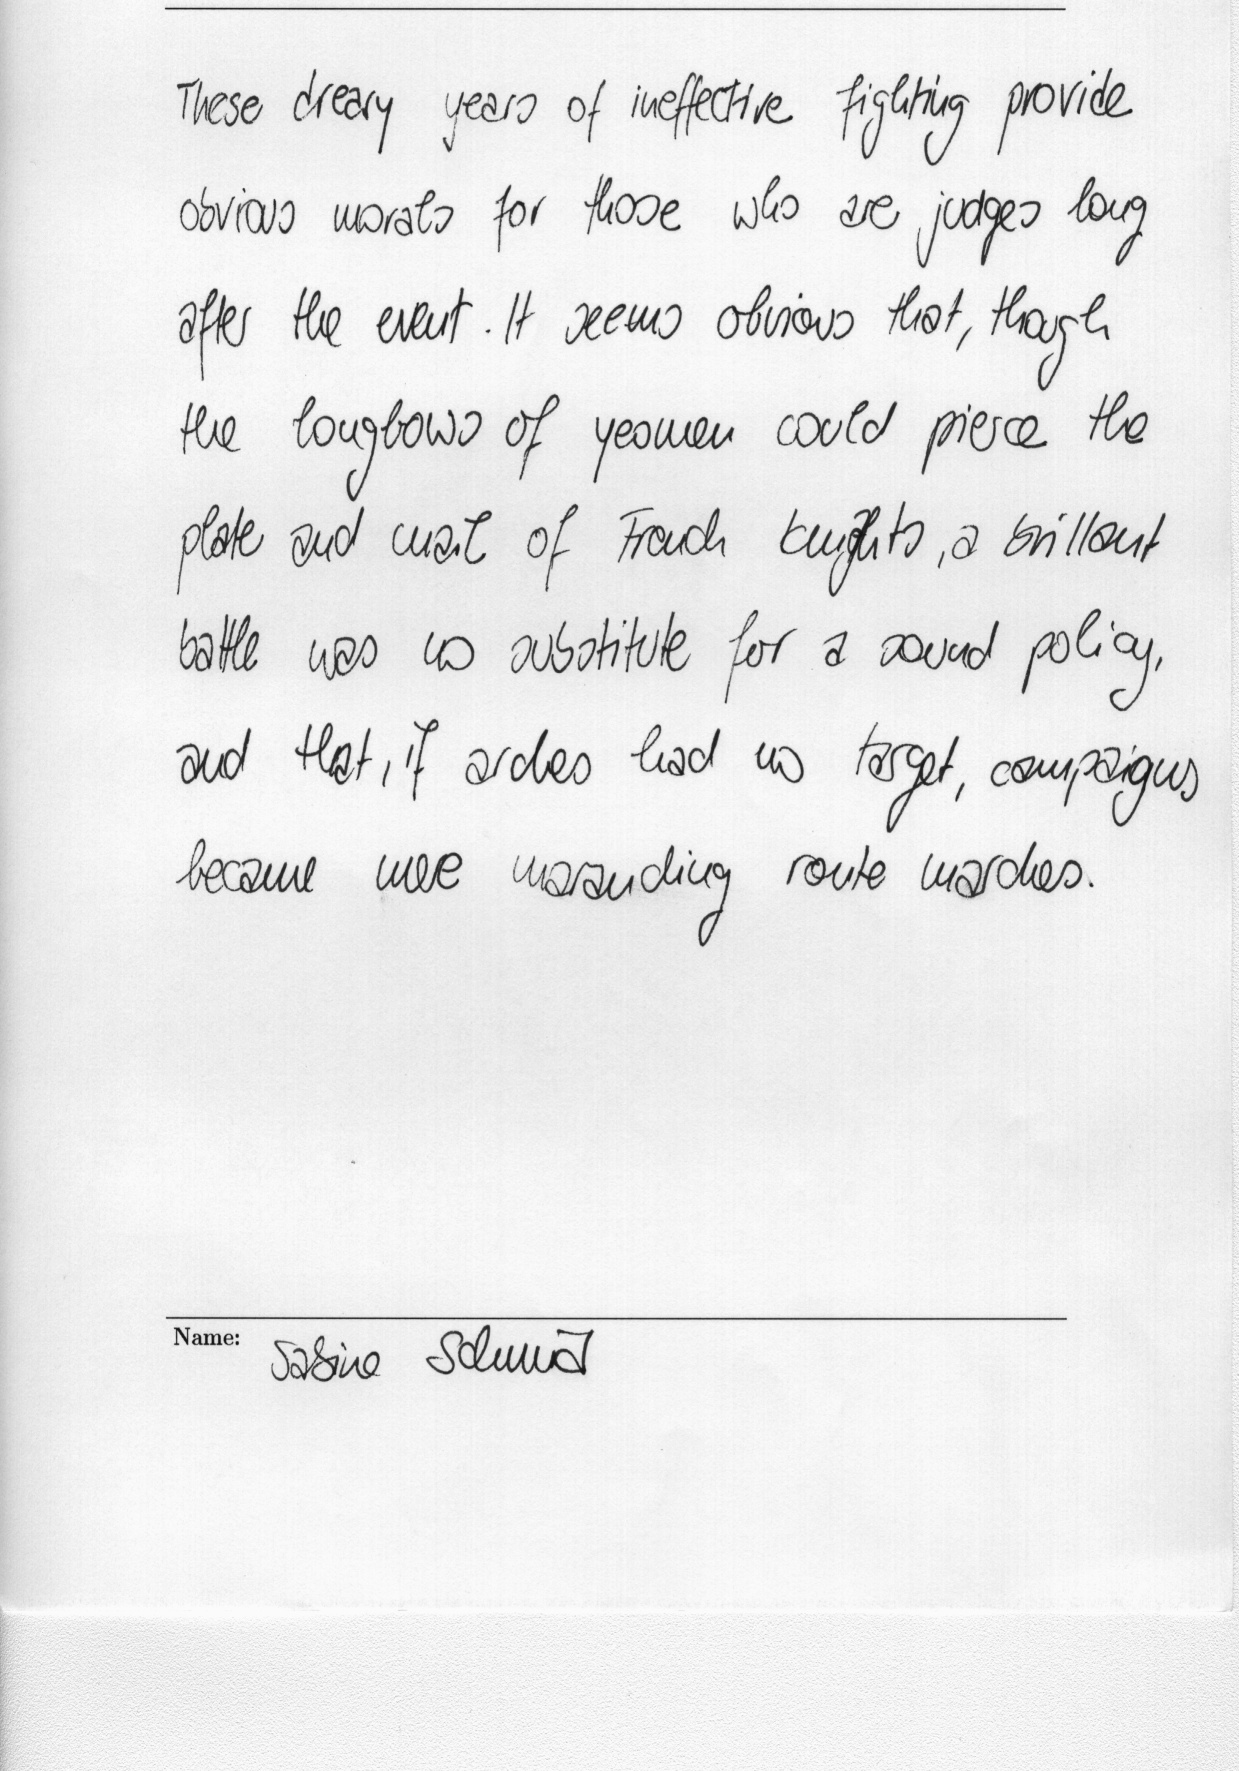 These dreary years of ineffective fighting provide
obvious morals for those who are judges long
after the event. It seems obvious that, though
the longbows of yeomen could pierce the
plate and mail of French knights, a brillant
battle was no substitute for a sound policy,
and that, if arches had no target, campaigns
became mere marauding route marches.
Name: Sabine Schmid